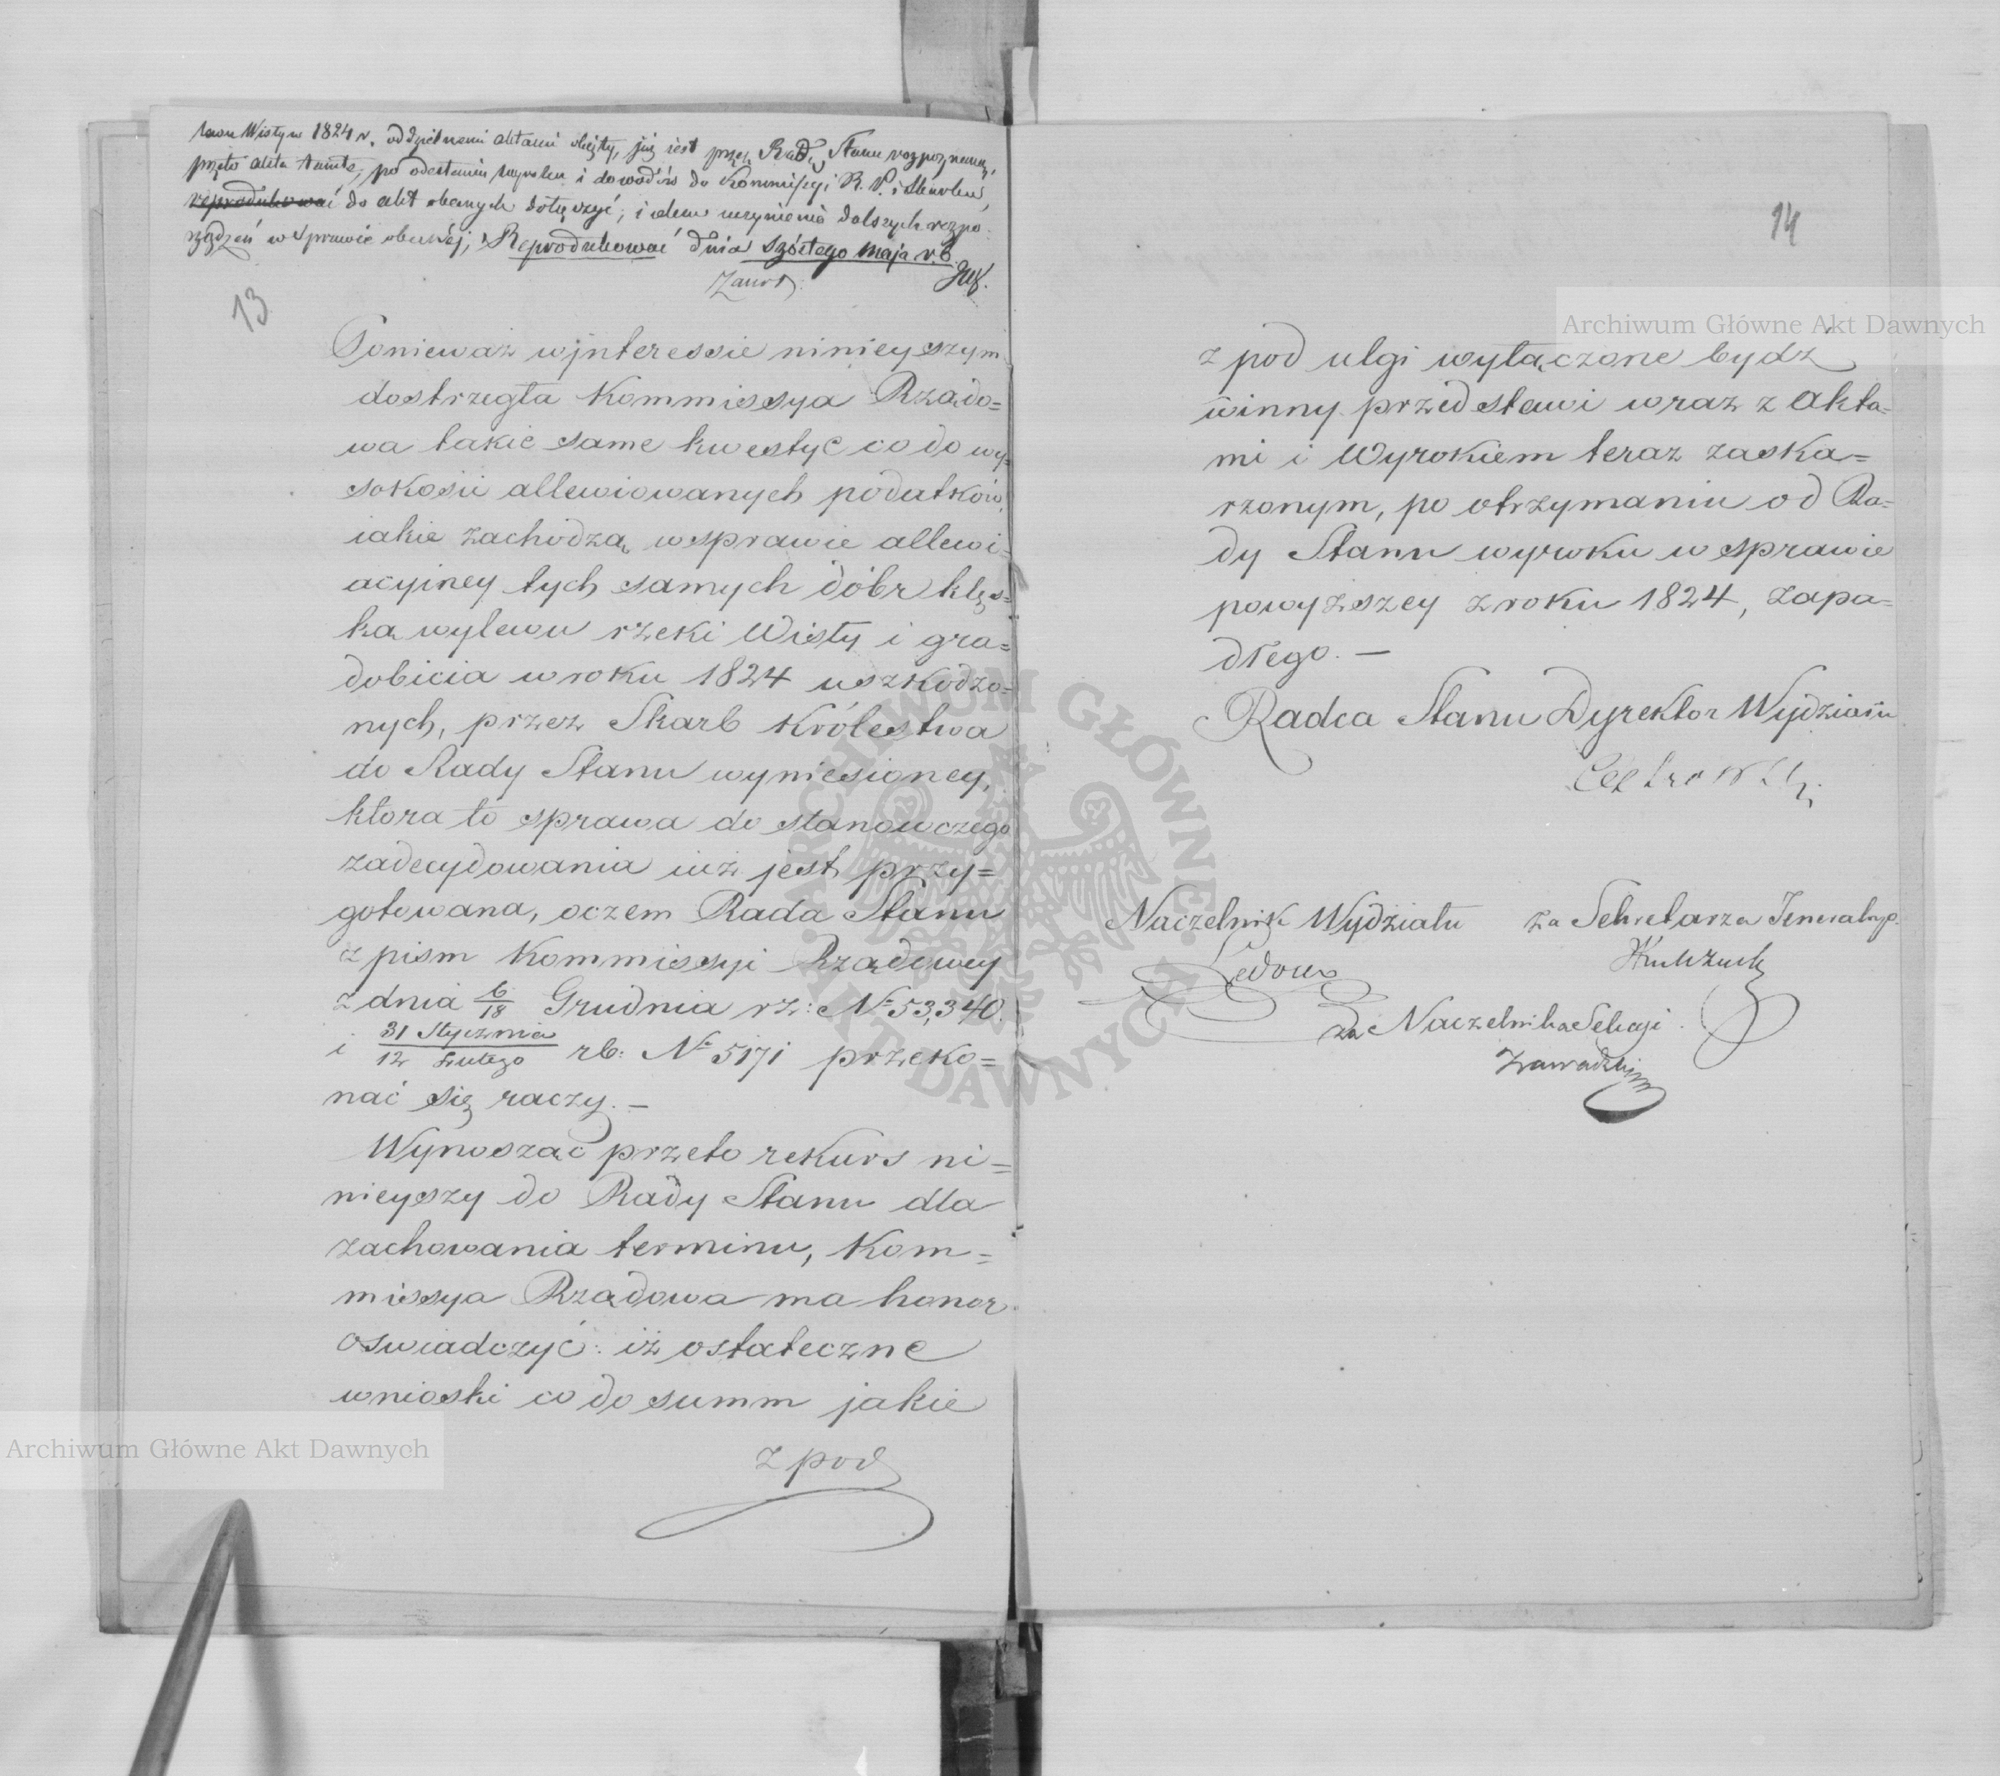 lewu Wisły w 1824 r. oddzielnemi aktami objęty, już jest przez Radę Stanu rozpoznany,
przeto akta tamte, po odesłaniu wyroku i dowodów do Kommissyi R. P. i Skarbu,
reprodukować do akt obecnych dołączyć; i celem uczynienia dalszych rozpo-
rządzeń w sprawie obecnéj, Reprodukować dnia szóstego maja r.b.
13
14
Ponieważ w jnteressie ninieyszym
dostrzegła Kommissya Rządo=
wa takie same kwestye co do wy=
sokości allewiowanych podatków,
iakie zachodzą w sprawie allewi=
acyiney tych samych dóbr klęs=
ką wylewu rzeki Wisły i gra=
dobicia w roku 1824 uszkodzo=
nych, przez Skarb Królestwa
do Rady Stanu wyniesioney,
ktora to sprawa do stanowczego
zadecydowania iuż jest przy=
gotowana, oczem Rada Stanu
z pism Kommissyi Rządowey
z dnia 6/18 Grudnia rz: № 53,340.
i 31 Stycznia/12 Lutego rb: № 5171 przeko=
nać się raczy. —
Wynosząc przeto rekurs ni=
nieyszy do Rady Stanu dla
zachowania terminu, Kom=
missya Rządowa ma honor
oswiadczyć: iż ostateczne
wnioski co do summ jakie
z pod
z pod ulgi wyłączone bydź
winny przedstawi wraz z Akta=
mi i Wyrokiem teraz zaska=
rzonym, po otrzymaniu od Ra=
dy Stanu wyroku w sprawie
powyższey z roku 1824, zapa=
dłego. —
Radca Stanu Dyrektor Wydziału
Naczelnik Wydziału
za Sekretarza Jeneralnego
za Naczelnika Sekcji
Zawadzki
Archiwum Główne Akt Dawnych
Archiwum Główne Akt Dawnych
ARCHIWUM GŁÓWNE AKT DAWNYCH